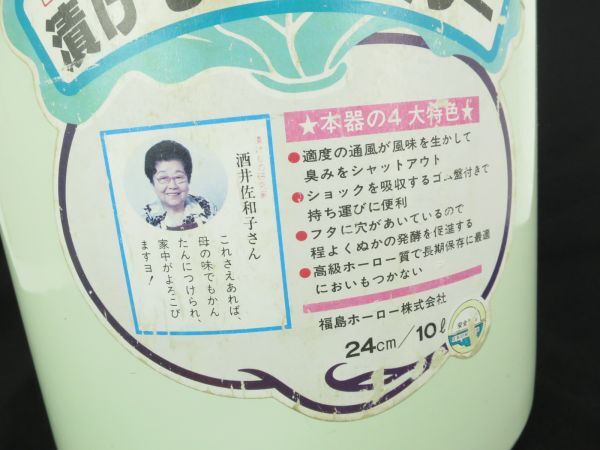 漬け
★本器の4大特色★
●適度の通風が風味を生かして
臭みをシャットアウト
●ショックを吸収するゴム盤付きで
持ち運びに便利
●フタに穴があいているので
程よくぬかの発酵を促進する
●高級ホーロー質で長期保存に最適
においもつかない
福島ホーロー株式会社
24cm/10ℓ
酒井佐和子さん
これさえあれば、
母の味でもかん
たんにつけられ、
家中がよろこび
ますヨ!